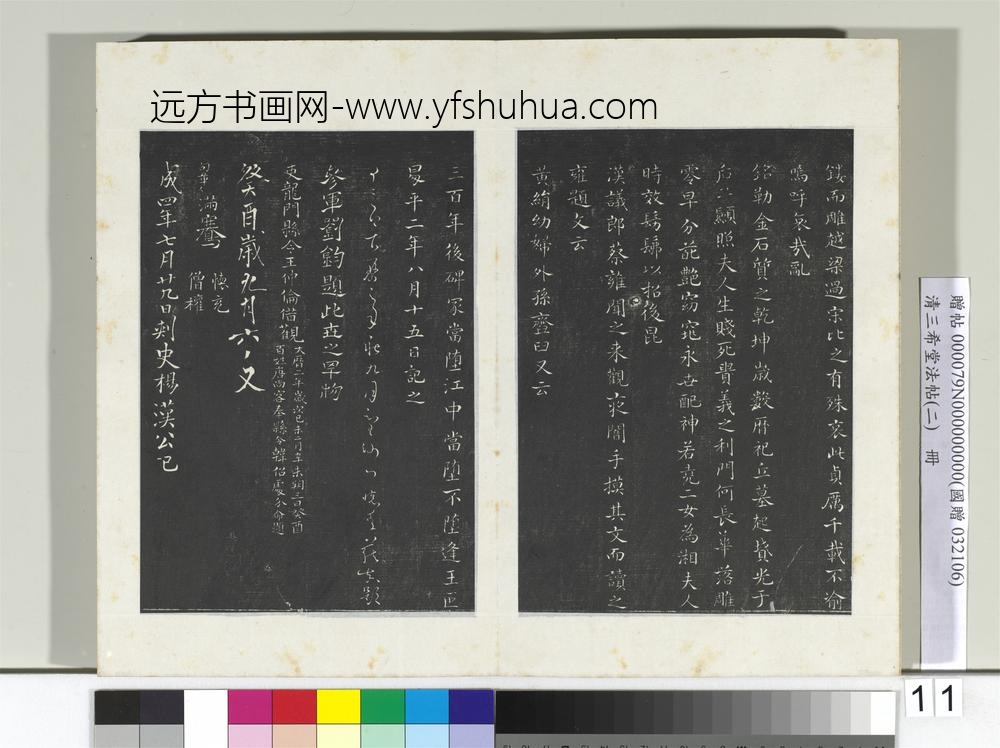 远方书画网-www.yfshuhua.com
鏤而雕越梁過宋比之有殊哀此貞厲千載不渝
嗚呼哀哉亂
銘勒金石質之乾坤歲數曆祀立墓起墳光于
后土顯照夫人生賤死貴義之利門何長華落雕
零早分葩艷窈窕永世配神若堯二女為湘夫人
時效髣髴以招後昆
漢議郎蔡雍聞之来觀夜闇手摸其文而讀之
雍題文云
黃絹幼婦外孫齏臼又云
三百年後碑冢當堕江中當堕不堕逢王叵
昇平二年八月十五日記之
九月
題
參軍劉鈞題此世之罕物
吏龍門縣令王仲倫借觀
大曆二年歲
癸酉歲九月
六
滿騫
懷充
僧權
成四年七月廿九日刺史楊漢公記
贈帖 000079N000000000(國贈 032106)
清三希堂法帖(二) 冊
11